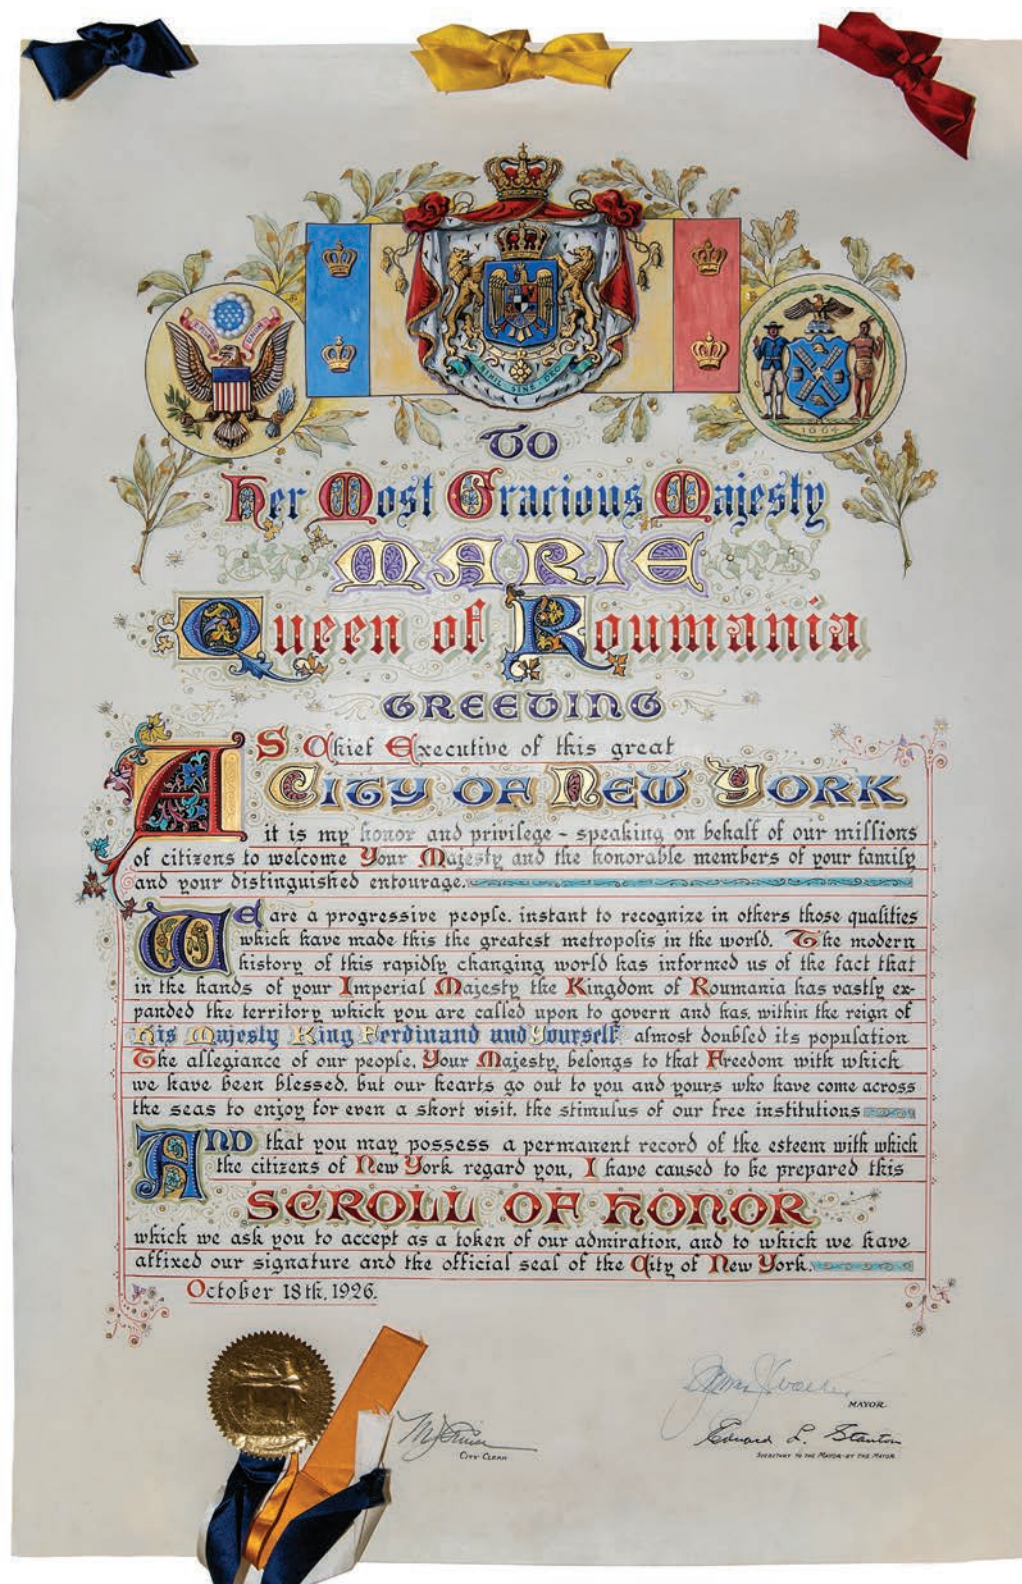 E PLURIBUS UNUM
NIHIL SINE DEO
1664
TO
Her Most Gracious Majesty
MARIE
Queen of Roumania
GREETING
AS Chief Executive of this great
CITY OF NEW YORK
it is my honor and privilege - speaking on behalf of our millions
of citizens to welcome Your Majesty and the honorable members of your family
and your distinguished entourage.
WE are a progressive people. instant to recognize in others those qualities
which have made this the greatest metropolis in the world. The modern
history of this rapidly changing world has informed us of the fact that
in the hands of your Imperial Majesty the Kingdom of Roumania has vastly ex-
panded the territory which you are called upon to govern and has, within the reign of
His Majesty King Ferdinand and Yourself almost doubled its population
The allegiance of our people, Your Majesty, belongs to that Freedom with which
we have been blessed, but our hearts go out to you and yours who have come across
the seas to enjoy for even a short visit, the stimulus of our free institutions
AND that you may possess a permanent record of the esteem with which
the citizens of New York regard you, I have caused to be prepared this
SCROLL OF HONOR
which we ask you to accept as a token of our admiration, and to which we have
affixed our signature and the official seal of the City of New York.
October 18th, 1926.
James J Walker
MAYOR
CITY CLERK
Edward L. Stanton
SECRETARY TO THE MAYOR - BY THE MAYOR